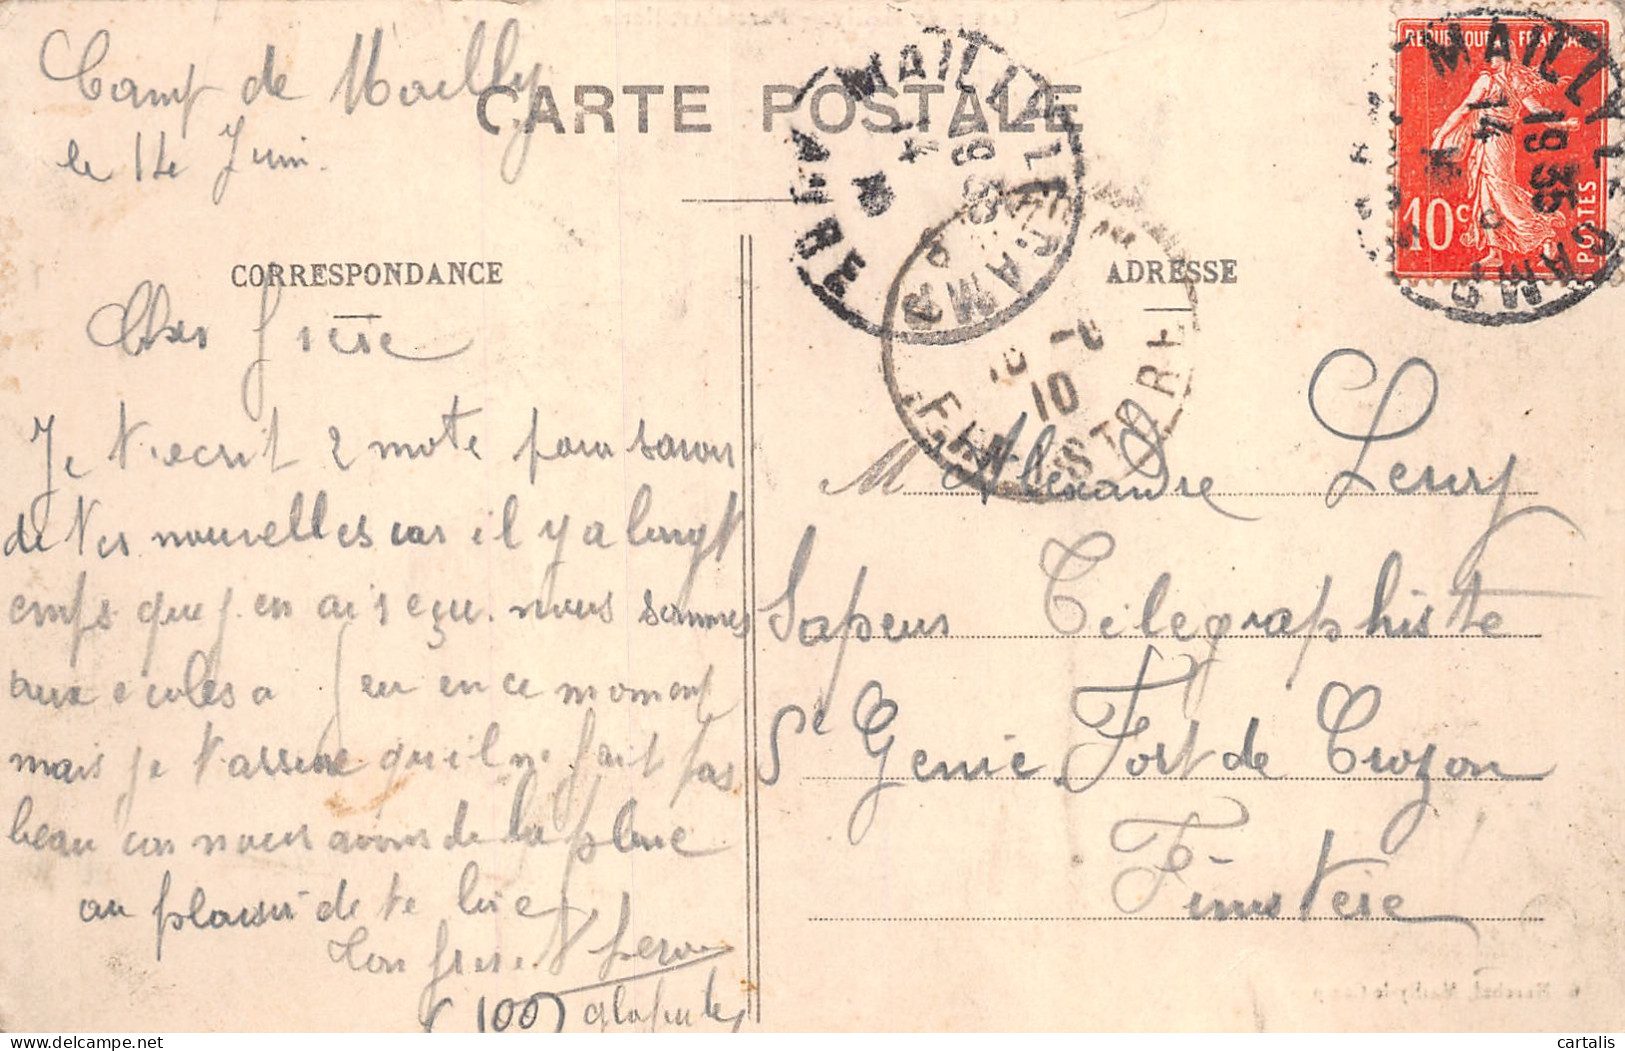 Camp de Mailly
le 14 Juin.
CARTE POSTALE
CORRESPONDANCE
Cher frère
Je t'ecrit 2 mots pour savoir
de tes nouvelles car il y a longt
emps que j'en ai reçu. nous sommes
aux ecoles a feu en ce moment
mais je t'assure qu'il ne fait pas
beau car nous avons de la pluie
au plaisir de te lire
Ton frère
ADRESSE
M Alexandre Leroy
Sapeur Télégraphiste
Genie Fort de Crozon
Finistère
MAILLY LE CAMP
AUBE
14
19 35
FINISTÈRE
10
MAILLY LE CAMP
14
19 35
REPUBLIQUE FRANÇAISE
10c
POSTES
cartalis
www.delcampe.net